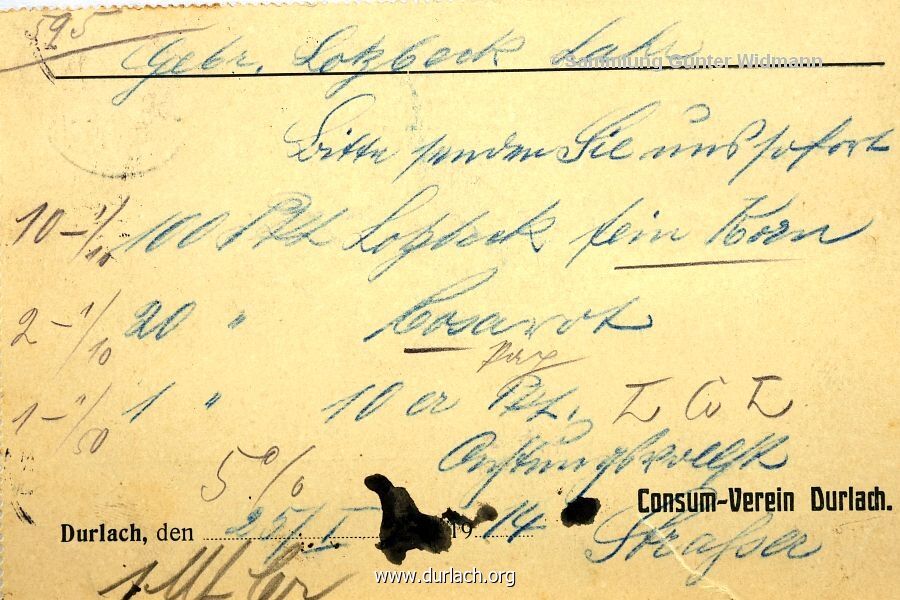 595
Gebr. Lotzbeck Lahr
Sammlung Günter Widmann
Bitte senden Sie uns sofort
10 – 1/10 100 Pkt Lotzbeck fein Korn
2 – 1/10 20 "
1 – 1/50 1 " 10 er Pkt.
5%
Consum-Verein Durlach.
Durlach, den 25/I 1914
www.durlach.org